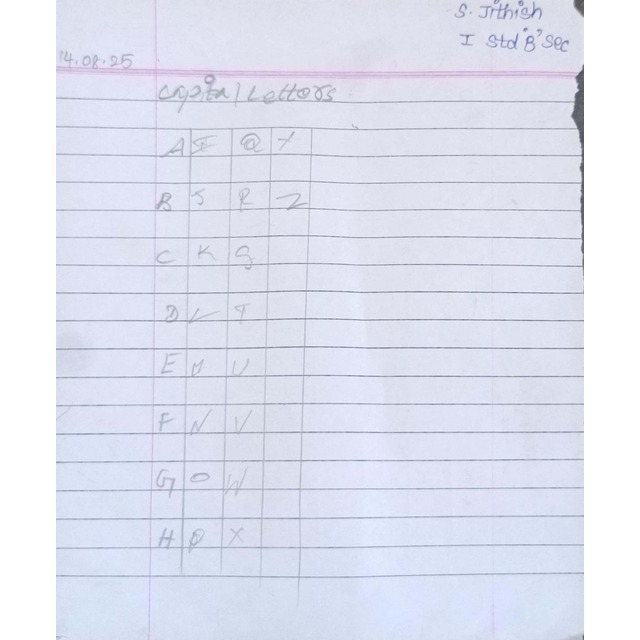 S. Jithish
I Std 'B' Sec
14.08.25
Capital Letters
A I Q Y
B J R Z
C K S
D L T
E M U
F N V
G O W
H P X